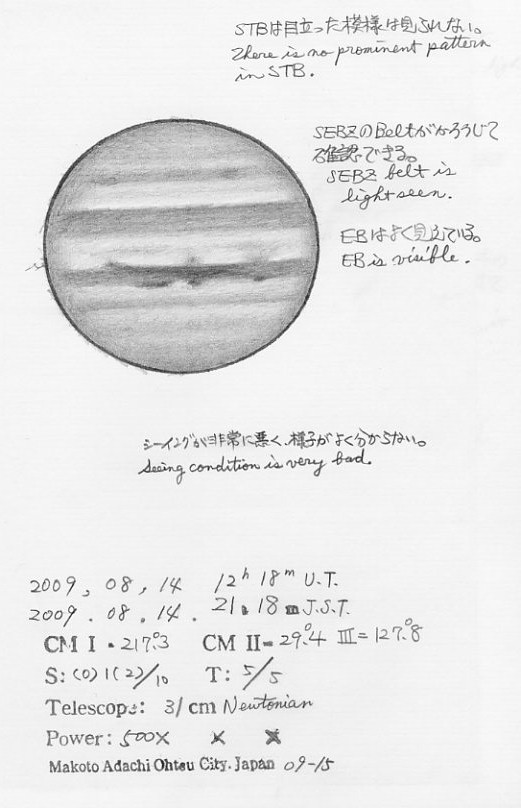 STBは目立った模様は見られない。
There is no prominent pattern
in STB.
SEBZのBeltがかろうじて
確認できる。
SEBZ belt is
light seen.
EBはよく見えている。
EB is visible.
シーイングが非常に悪く、様子がよく分からない。
Seeing condition is very bad.
2009, 08, 14 12h 18m U.T.
2009. 08. 14. 21h 18m J.S.T.
CM I = 217.°3 CM II = 29.°4 III = 127.°8
S: (0) 1 (2)/10 T: 5/5
Telescope: 31 cm Newtonian
Power: 500× × ×
Makoto Adachi Ohtsu City. Japan 09-15